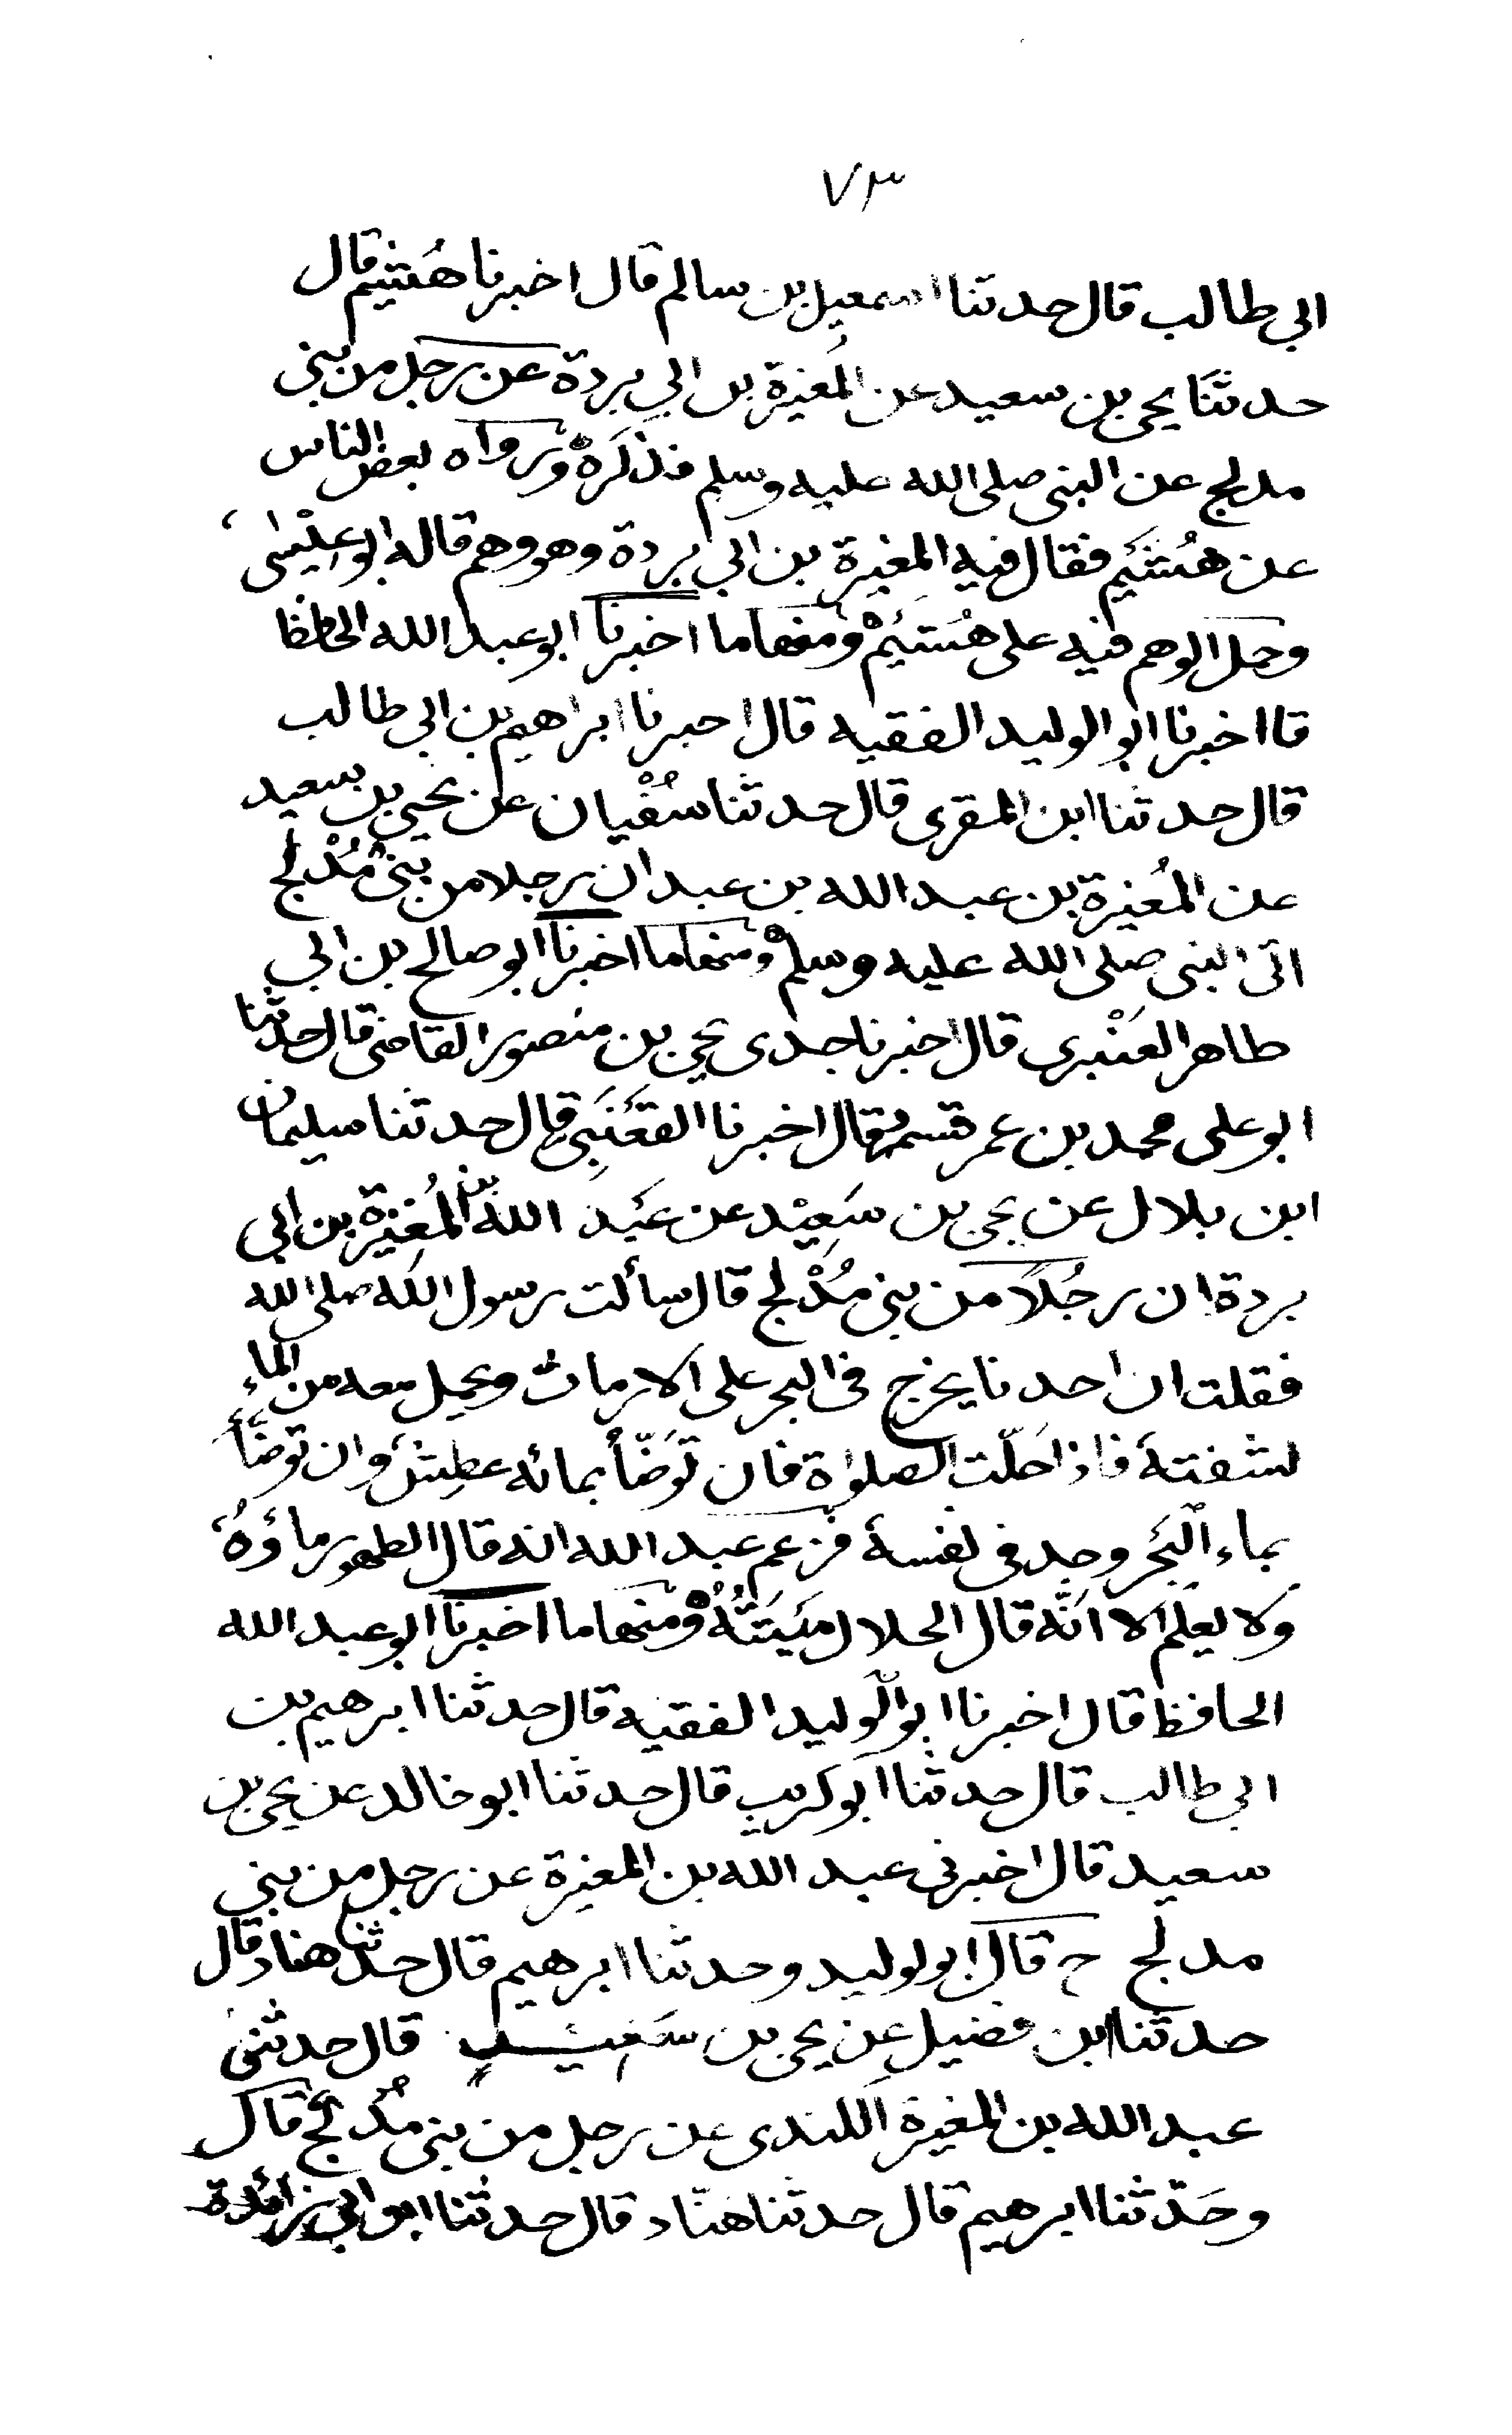 ٧٣
ابي طالب قال حدثنا اسمعيل بن سالم قال اخبرنا هُشَيم قال
حدثنَا يحيى بن سعيد عن المُغيرة بن ابي بردة عن رجل من بنى
مدلج عن النبى صلى الله عليه وسلم فذكَرَهْ ورواه بعض الناس
عن هُشَيم فقال فيه المغيرة بن ابي بردة وهو وهم قاله ابو عيْسٰى
وحمل الوهم فيه على هُشَيْمْ ومنها ما اخبرنا ابو عبد الله الحافظ
قا اخبرنا ابو الوليد الفقيه قال احبرنا ابراهيم بن ابي طالب
قال حدثنا ابن المقرى قال حدثنا سُفْيان عن يحيى بن سعيد
عن المُغيرة بن عبد الله بن عبد ان رجلا من بنى مُدْلج
اتى النبى صلى الله عليه وسلم ومنها ما اخبرنا ابو صالح بن ابي
طاهر العَنْبرى قال اخبرنا جدى يحيى بن منصور القاضى قال حدثنا
ابو على محمد بن عمر قال اخبرنا القَعْنَبِى قال حدثنا سليمان
ابن بلال عن يحيى بن سَعِيْد عن عَبْد الله بن المُغِيْرة بن ابي
بردة ان رجُلاً من بنى مُدْلج قال سألت رسول الله صلى الله
فقلت ان احدنا يخرج فى البحر على الارماث ويحمل معه من الماءِ
لشفته فاذا حَلّت الصلوٰة فان تَوَضّأ بمائه عطِش وان توضّأَ
بماء البَحْر وجد فى نفسه فزعم عبد الله انه قال الطهور ماؤهُ
ولا يعلم الا انّه قال الحلال مَيْتَتُهُ ومنها ما اخبرنا ابو عبد الله
الحافظ قال اخبرنا ابو الوليد الفقيه قال حدثنا ابرهيم بن
ابي طالب قال حدثنا ابو كريب قال حدثنا ابو خالد عن يحيى بن
سعيد قال اخبرنى عبد الله بن المغيرة عن رجل من بنى
مدلج ح قال ابو لوليد وحدثنا ابرهيم قال حدثنا هناد قال
حدثنا ابن فضيل عن يحيى بن سَعِيْد قال حدثنى
عبد الله بن المغيرة الكندى عن رجل من بنى مُدْلج قال
وحَدّثنا ابرهيم قال حدثنا هَنّاد قال حدثنا ابن ابي زائدة